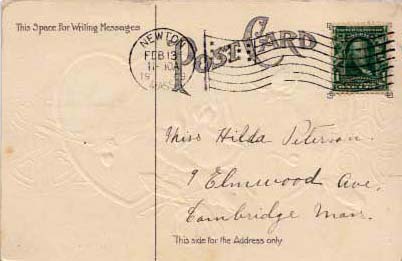 This Space For Writing Messages
POST CARD
NEWTON
FEB 13
11-10A
MASS
Miss Hilda Peterson.
9 Elmwood Ave,
Cambridge Mass.
This side for the Address only